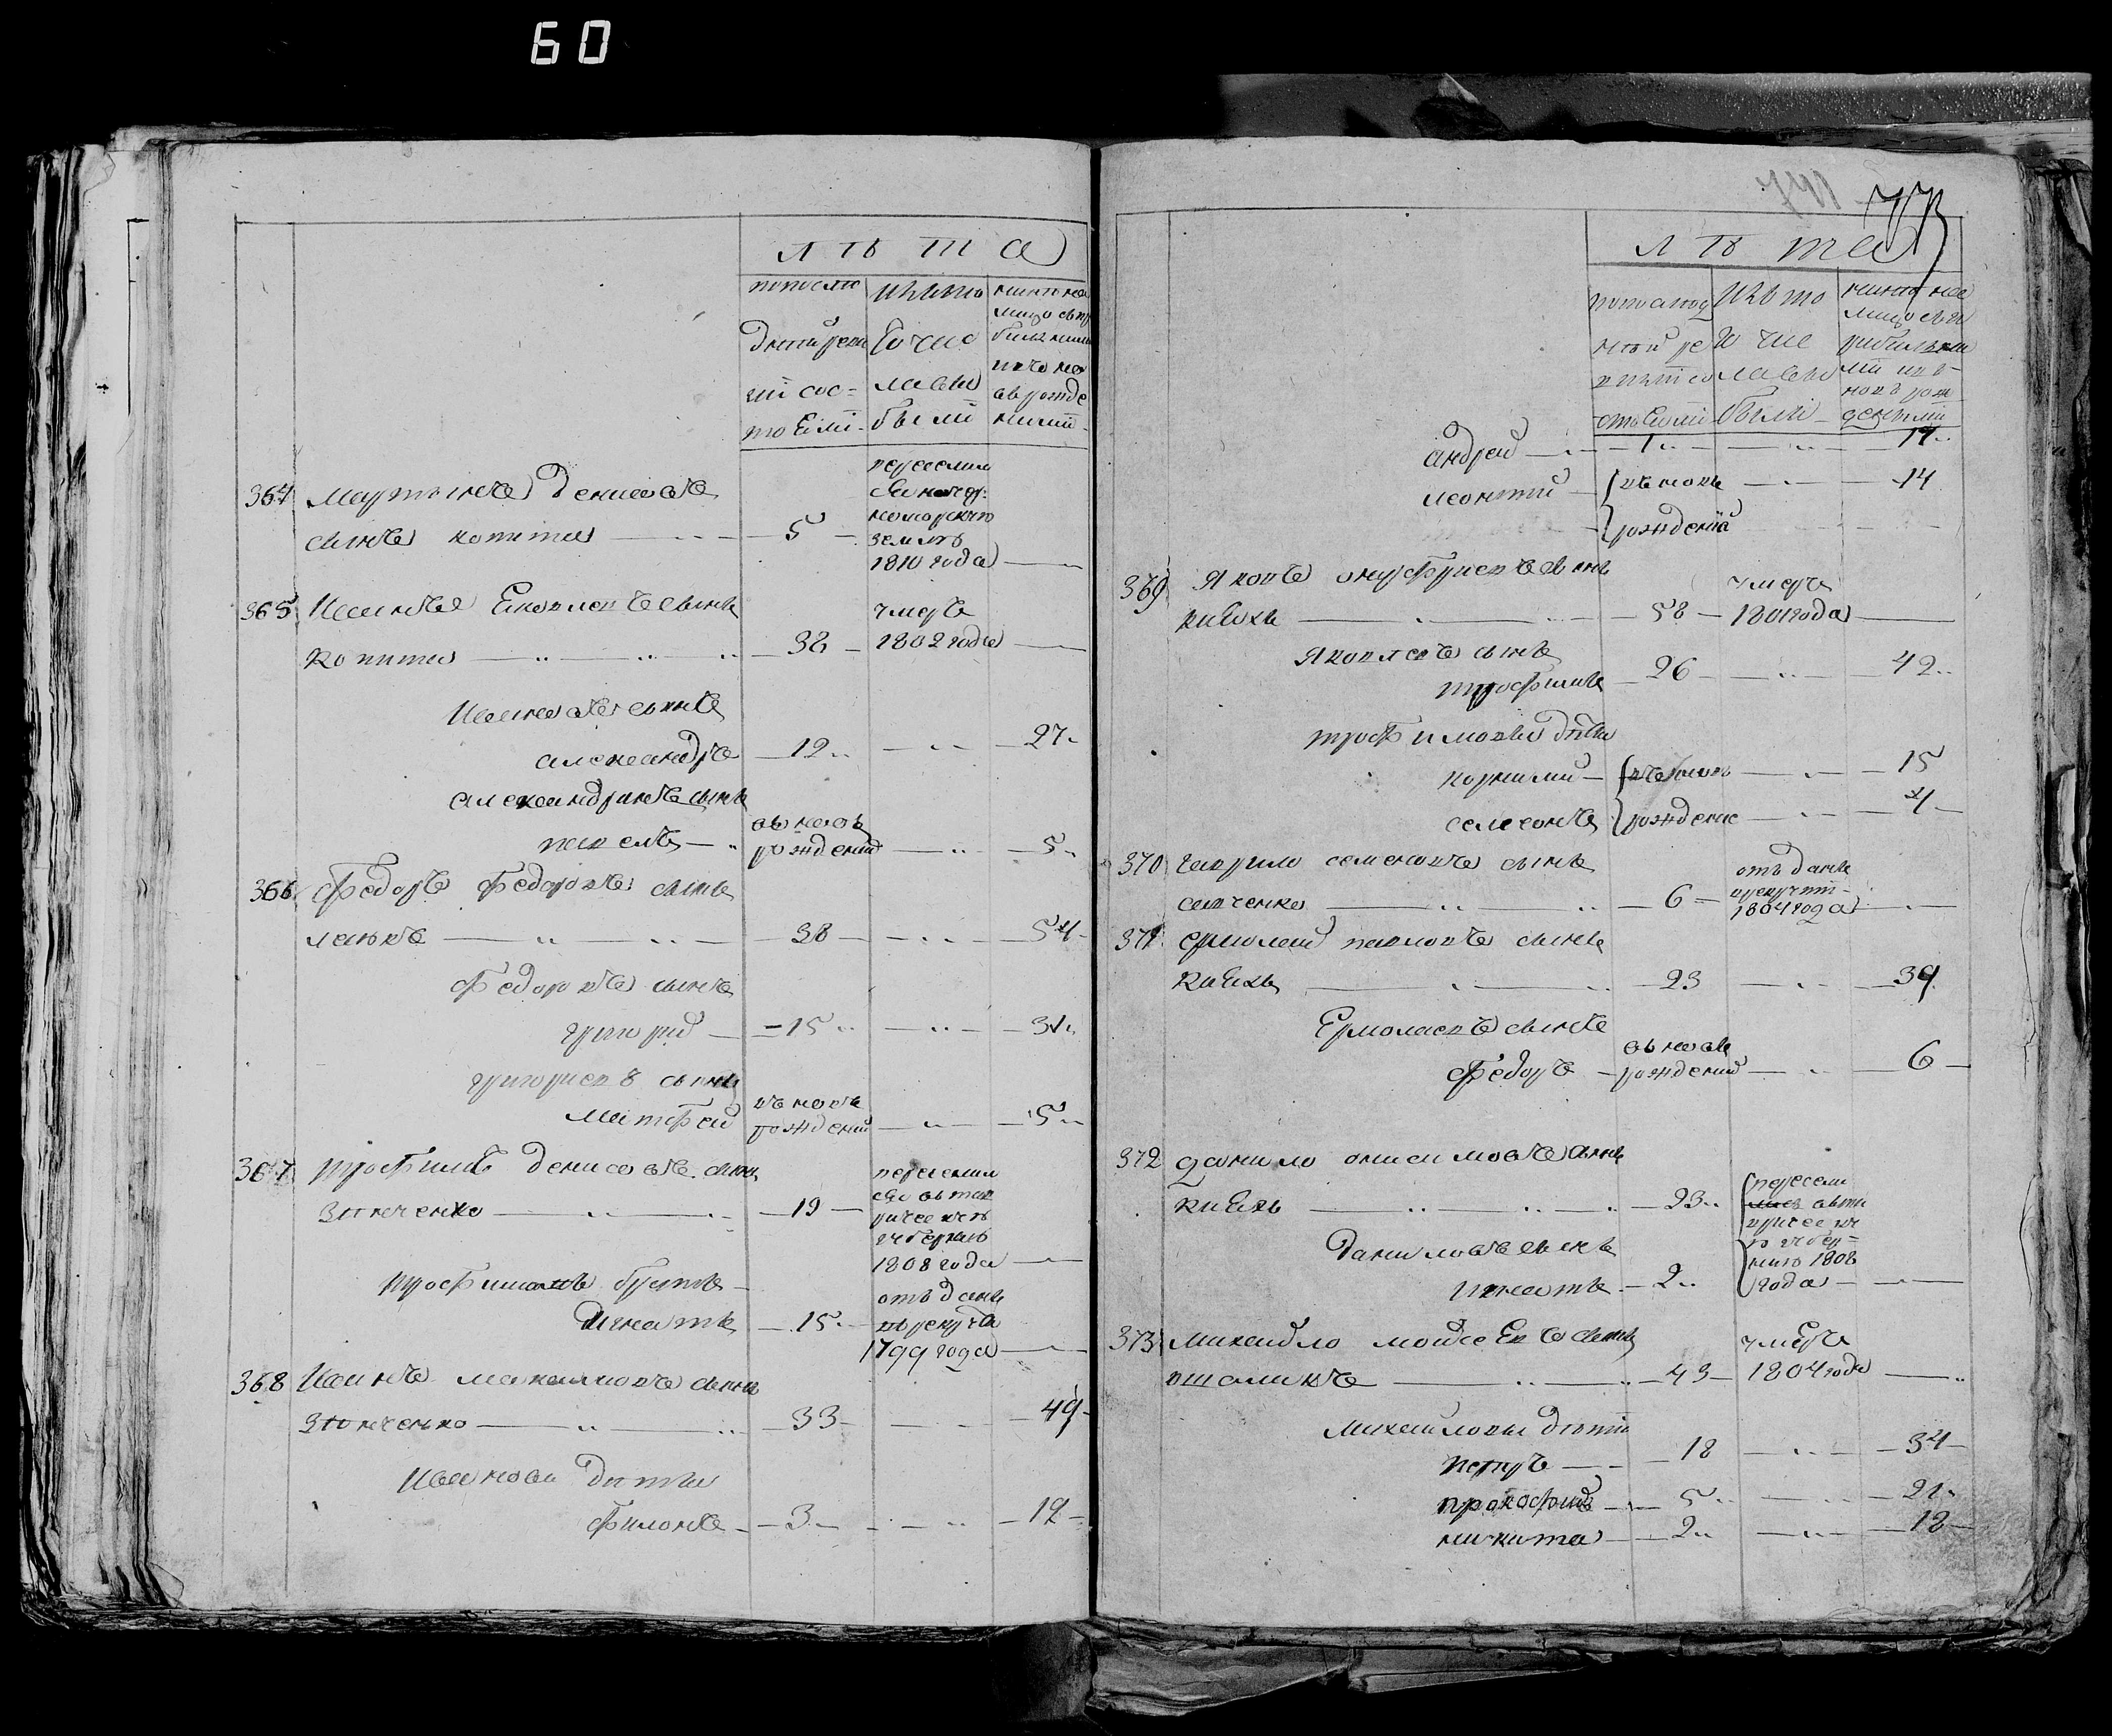 60
лѣта
по послѣ
дней реви
зіи сос=
тояли
изъ то
го чис
ла выб
были
ныне на
лицо съ при
былыми
и въ но
въ рожде
ными
364 мартынъ денисовъ
сынъ копита 5
переселил
ся на чер
номорскую
землю
1810 года
365 Иванъ Яковлевъ сынъ
копита 38
умеръ
1802 года
Ивановъ сынъ
александръ 12 27
александровъ сынъ
павелъ
въ новь
рожденый 5
366 Федоръ федоровъ сынъ
38 54
федоровъ сынъ
григорий 15 31
григориевъ сынъ
матфей
въ новь
рожденый 5
367 трофимъ денисовъ сынъ
зинченко 19
переселил
ся в тав
рическую
губернию
1808 года
трофимовъ братъ
Игнатъ 15
отъ данъ
въ рекруты
1799 года
368 Иванъ максимовъ сынъ
зинченко 33 49
Ивановы дѣти
филонъ 3 12
73
лѣта
по послед
ней ре
визіи со
стояли
изъ то
го чис
ла вы
были
ныне на
лицо съ п
рибылы
ми и въ
новь рож
денными
андрей 1 17
леонтий въ новь 14
рождения
369 Яковъ онуфриевъ сынъ
кивхъ 58
умеръ
1801 года
Яковлевъ сынъ
трофимъ 26 42
трофимовы дѣти
корнилий въ новь 15
рождение 4
370 гаврило семеновъ сынъ
савченко 6
отъ данъ
в рекруты
1804 года
371 ермолай павловъ сынъ
23 39
Ермолаевъ сынъ
федоръ
въ новь
рожденый 6
372 данило онисимовъ сынъ
23
пересели
лись в та
врическу
ю губер=
нию 1808
года
даниловъ сынъ
игнатъ 2
373 михайло мойсеевъ сынъ
43
умеръ
1804 года
михайловы дѣти
петръ 18 34
прокофий 5 21
никита 2 18